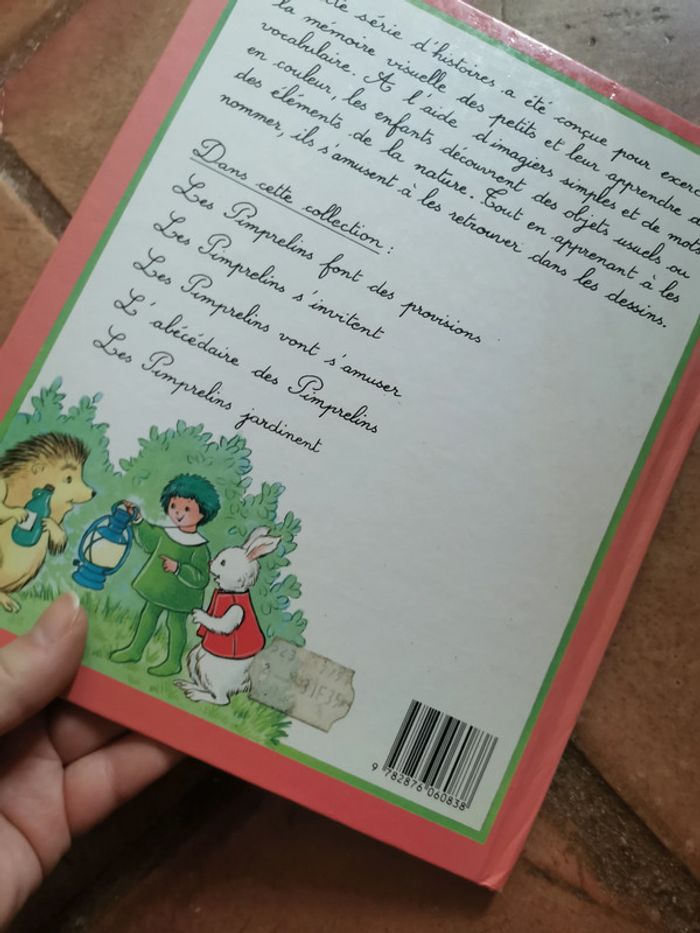 série d'histoires a été conçue pour
la mémoire visuelle des petits et leur apprendre
vocabulaire. A l'aide d'imagiers simples et de mots
en couleur, les enfants découvrent des objets usuels ou
des éléments de la nature. Tout en apprenant à les
nommer, ils s'amusent à les retrouver dans les dessins.
Dans cette collection :
Les Pimprelins font des provisions
Les Pimprelins s'invitent
Les Pimprelins vont s'amuser
L'abécédaire des Pimprelins
Les Pimprelins jardinent
9 782876 060838